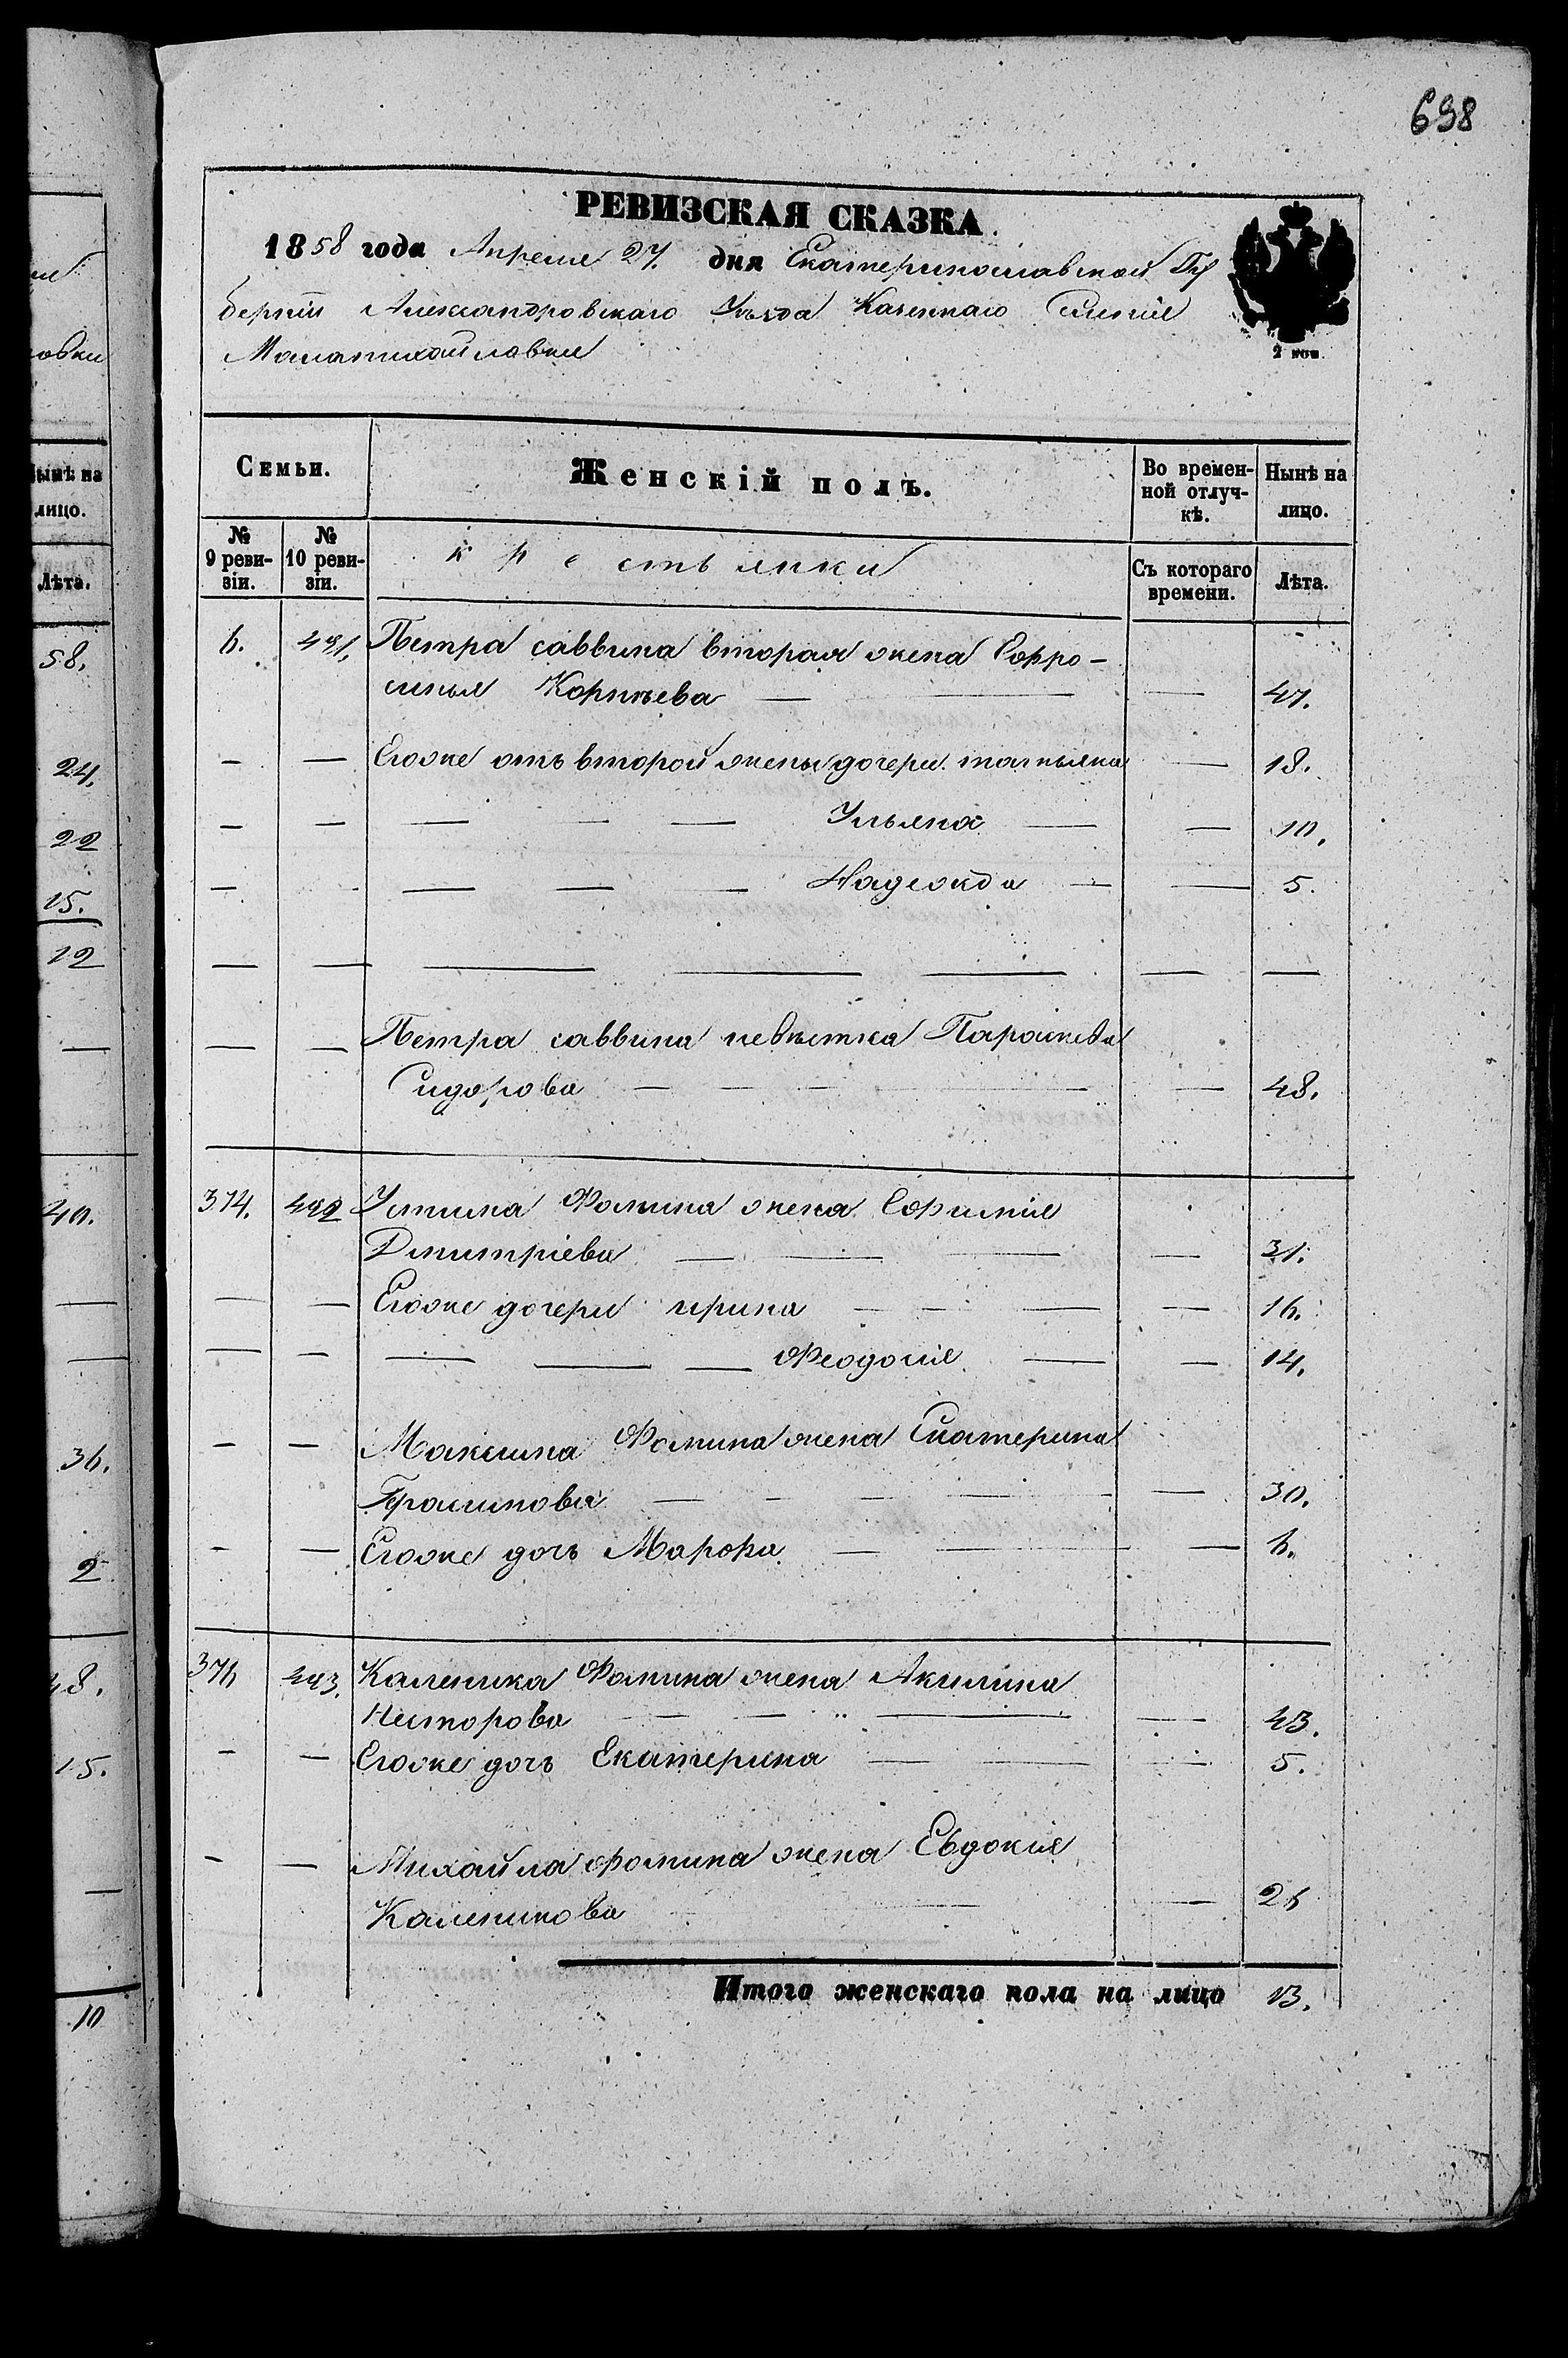 698
РЕВИЗСКАЯ СКАЗКА.
1858 года Апреля 27. дня Екатеринославской Гу
берніи Александровскаго Уѣзда Казеннаго Селенія
Маламихайловки
2 коп.
Семьи. Женскій полъ. Во времен-
ной отлуч-
кѣ. Нынѣ на
лицо.
№
9 реви-
зіи. №
10 реви-
зіи. крестьянки Съ котораго
времени. Лѣта.
6. 491. Петра саввина вторая жена Ефро-
синья Корнѣева — — — 47.
— — Егоже отъ второй жены дочери татьяна — 18.
— — — — — Ульяна — — 10.
— — — — — Надежда — — 5.
— — — — — — —
— — Петра саввина невѣстка Параскева
Сидорова — — — — — 48.
374. 492 Устина Фомина жена Евфимія
Дмитріева — — — — 31.
— — Егоже дочери ирина — — — — 16.
— — — — — Феодосія — — 14.
— — Максима Фомина жена Екатерина
Герасимова — — — — — 30.
— — Егоже дочь Марфа — — — 6.
376 493. Каленика Фомина жена Акилина
Несторова — — — — 43.
— — Егоже дочь Екатерина — — — 5.
— — Михайла фомина жена Евдокія
Каленикова — — — 26
Итого женскаго пола на лицо 13.
овки
Нынѣ на
лицо.
Лѣта.
58.
24.
22
15.
12
—
40.
—
—
36.
2
48.
15.
—
10